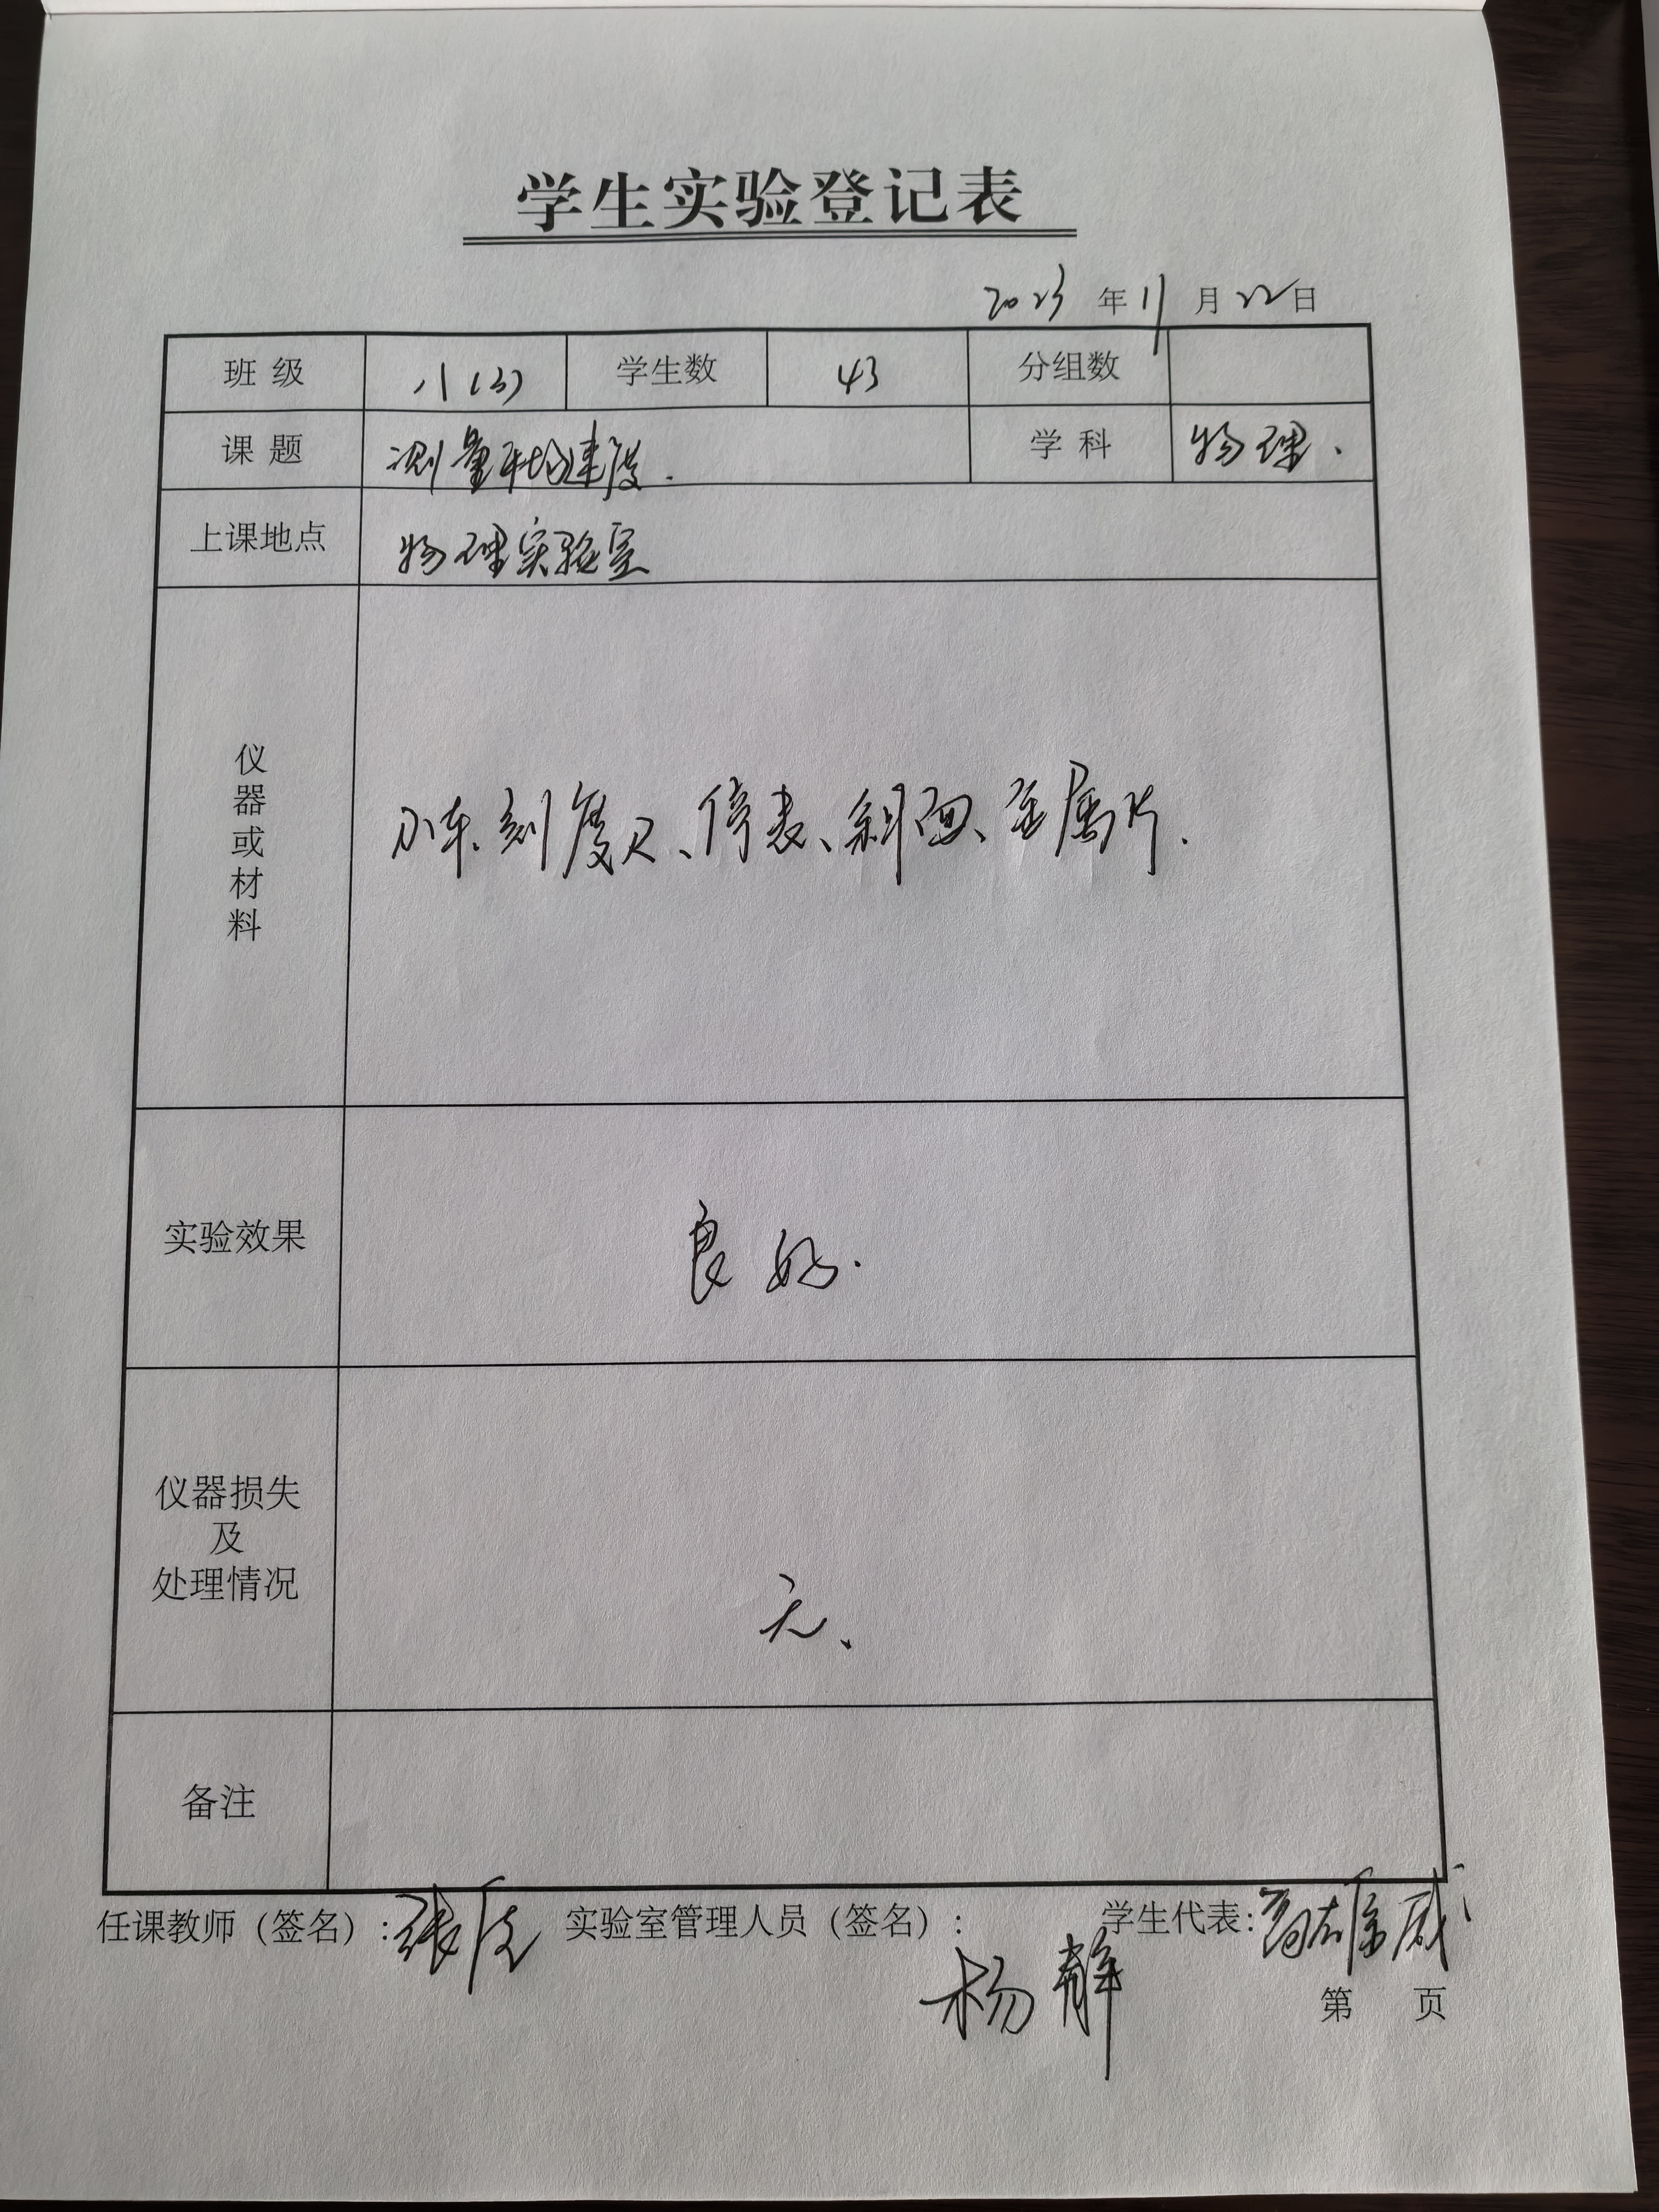 学生实验登记表
2023年11月22日
班级 八(3) 学生数 43 分组数
课题 测量平均速度. 学科 物理.
上课地点 物理实验室
仪器或材料 小车、刻度尺、停表、斜面、金属片.
实验效果 良好.
仪器损失
及
处理情况 无、
备注
任课教师（签名）: 张 实验室管理人员（签名）: 杨静 学生代表:
第 页